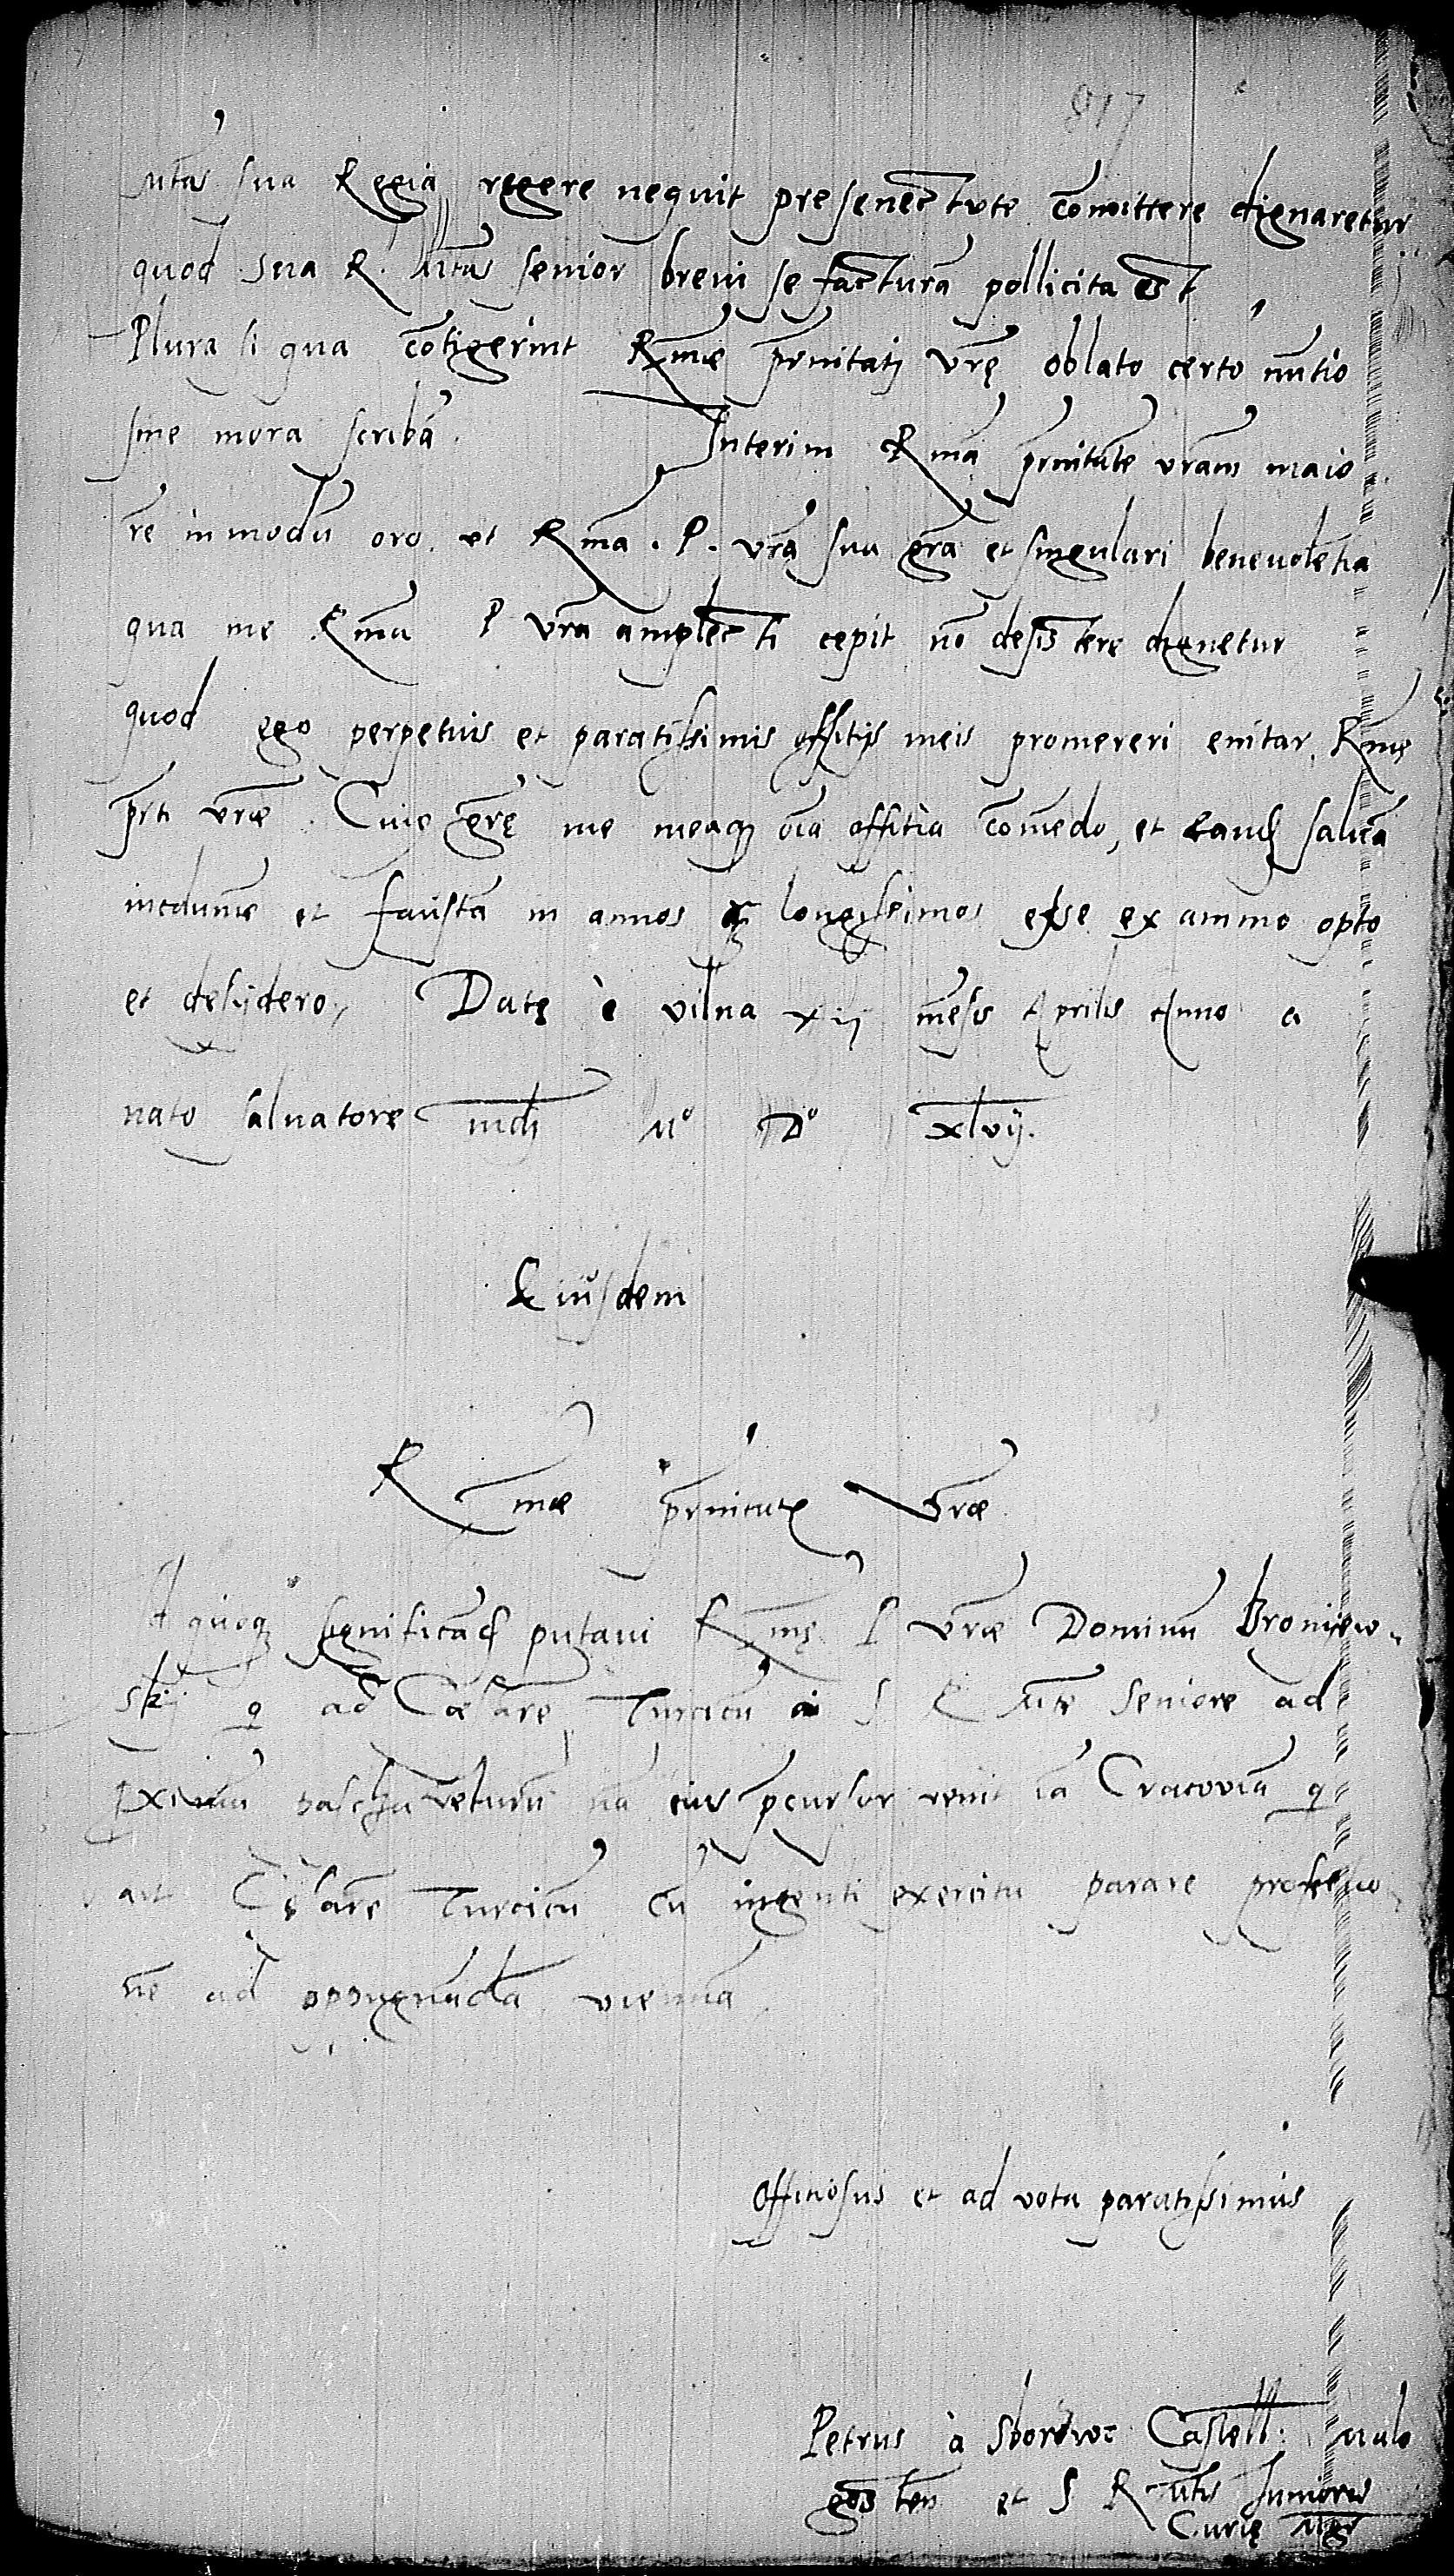 917
Mtas sua Regia regere nequit pre senectute cōmittere dignaretur
quod sua R. Mtas senior breui se facturā pollicita est
Plura si qua cōtigerint Rmae prnitatj vrę oblato certo nūtio
sine mora scribā. Interim Rmā prnitatē vram maio
rē in modū oro. et Rma. P. vra sua gra et singulari beneuolētia
qua me Rma P vra amplecti cepit nō desistere dignetur
quod ego perpetuis et paratissimis offitijs meis promereri enitar, Rmę
prti vrae. Cuis grę me meaq; oīa offitia cōmēdo, et eand salvā
incolumē et faustā in annos longissimos esse ex animo opto
et desydero, Datę è vilna xij mēsis Aprilis Anno a
nato saluatore mdi Mº Dº xlvij.
Eiusdem
Rmae prnitatj vrae
Id quoq; significād putaui Rmę P vrae Dominū Broniew
skj q ad Caesarē Turcicū a S R Mte seniore ad
pximū pascha reditū nā eius pcursor venit iā Cracoviā q
ait Cęsarē Turcicū cū ingenti exercitu parare profectio
nē ad oppugnādā viennā
Offitiosus et ad vota paratissimus
Petrus à Sborow Castell: Malo
gosten et S R Mtis Iunioris
Curię Mgr